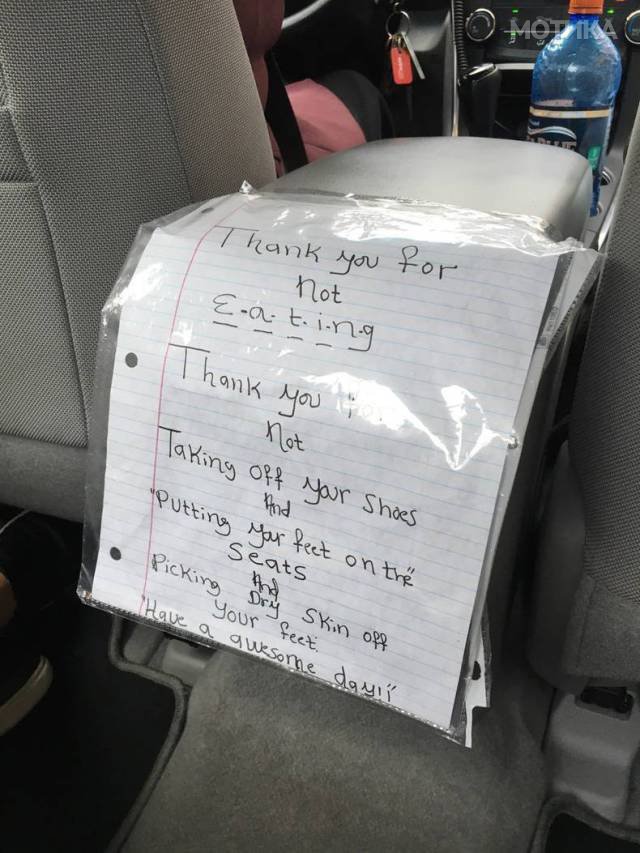 МОТИКА
Thank you for
Not
E.a.t.i.n.g
Thank you
Not
Taking off your shoes
And
"Putting your feet on the"
Seats
And
Picking Dry Skin off
Your feet.
"Have a awesome day!!"